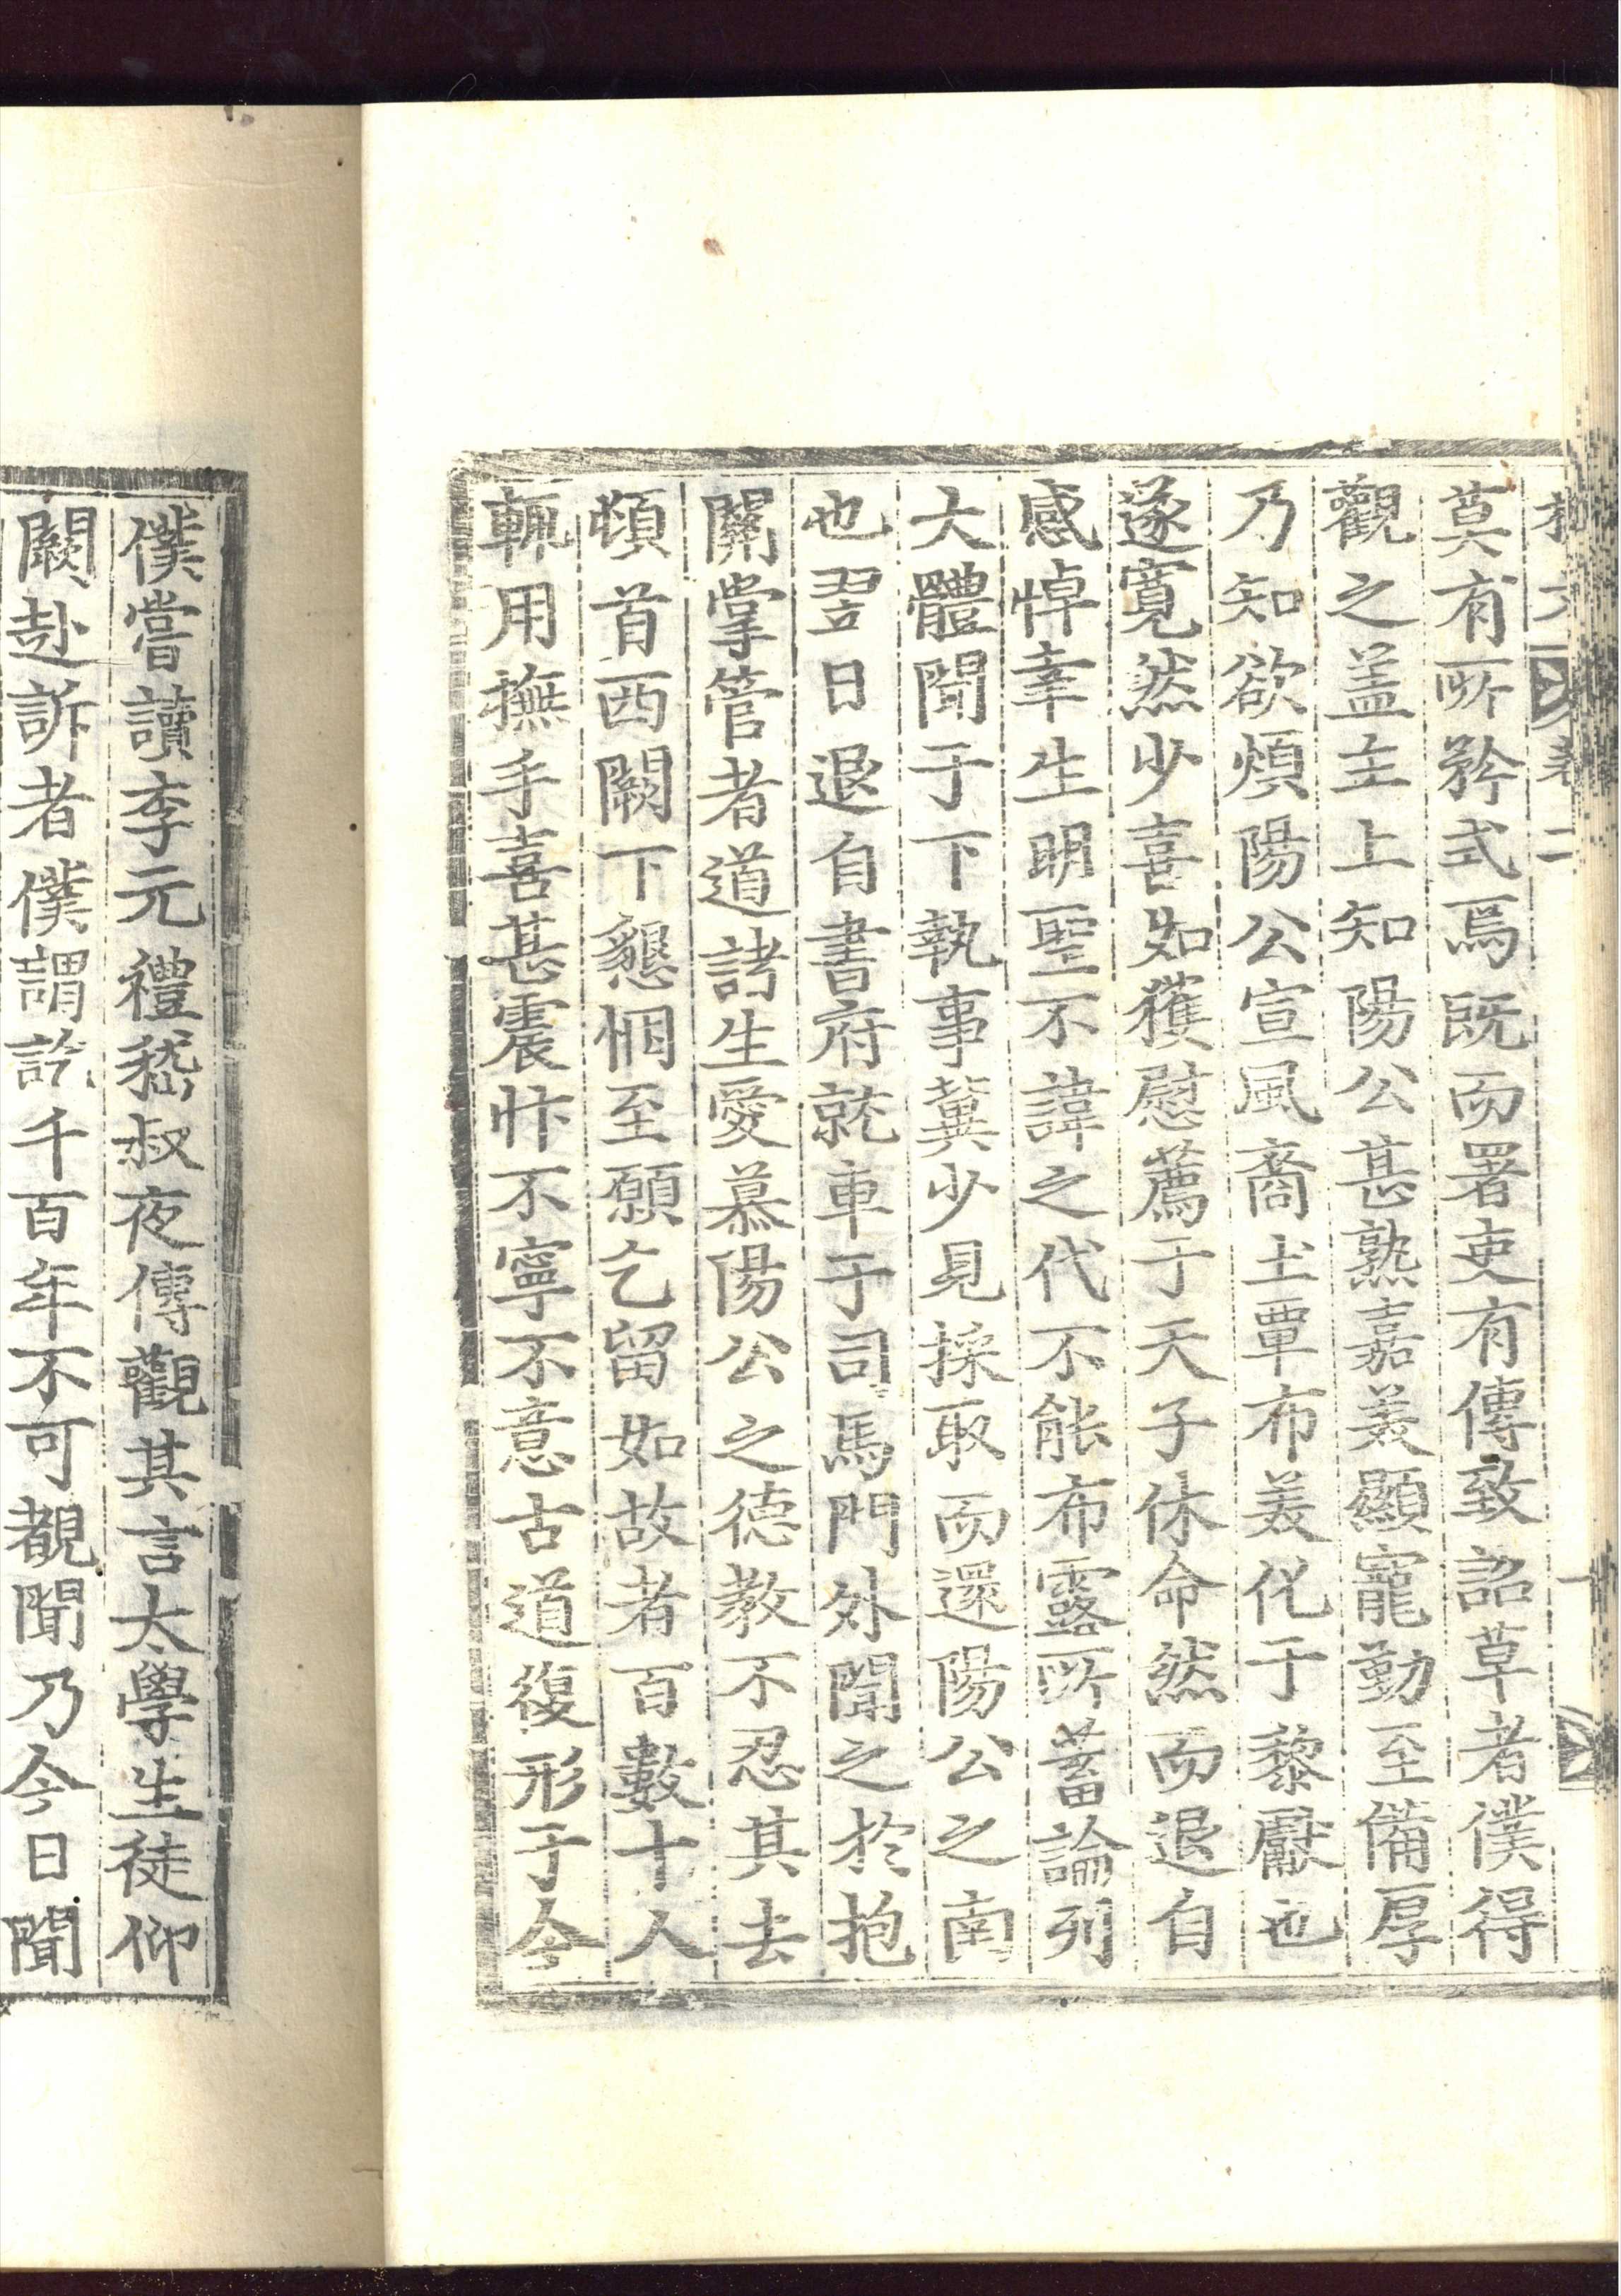 卷二
莫有所矜式焉旣而署吏有傳致詔草者僕得
觀之盖主上知陽公甚熟嘉美顯寵勤至備厚
乃知欲煩陽公宣風裔土覃布美化于黎獻也
遂寬然少喜如獲慰薦于天子休命然而退自
感悼幸生明聖不諱之代不能布露所蓄論列
大體聞于下執事冀少見採取而還陽公之南
也翌日退自書府就車于司馬門外聞之於抱
關掌管者道諸生愛慕陽公之德教不忍其去
頓首西闕下懇悃至願乞留如故者百數十人
輒用撫手喜甚震忭不寧不意古道復形于今
僕嘗讀李元禮嵇叔夜傳觀其言太學生徒仰
闕赴訴者僕謂訖千百年不可覩聞乃今日聞